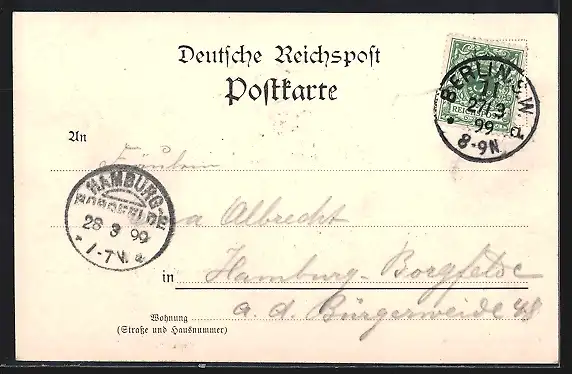 Deutsche Reichspost
Postkarte
BERLIN S.W.
11
27/3
99
8-9N.
An
Fräulein
HAMBURG-
BORGFELDE
28 3 99
-7V.
a Albrecht
in Hamburg-Borgfelde
a. d. Bürgerweide 48
Wohnung
(Straße und Hausnummer)